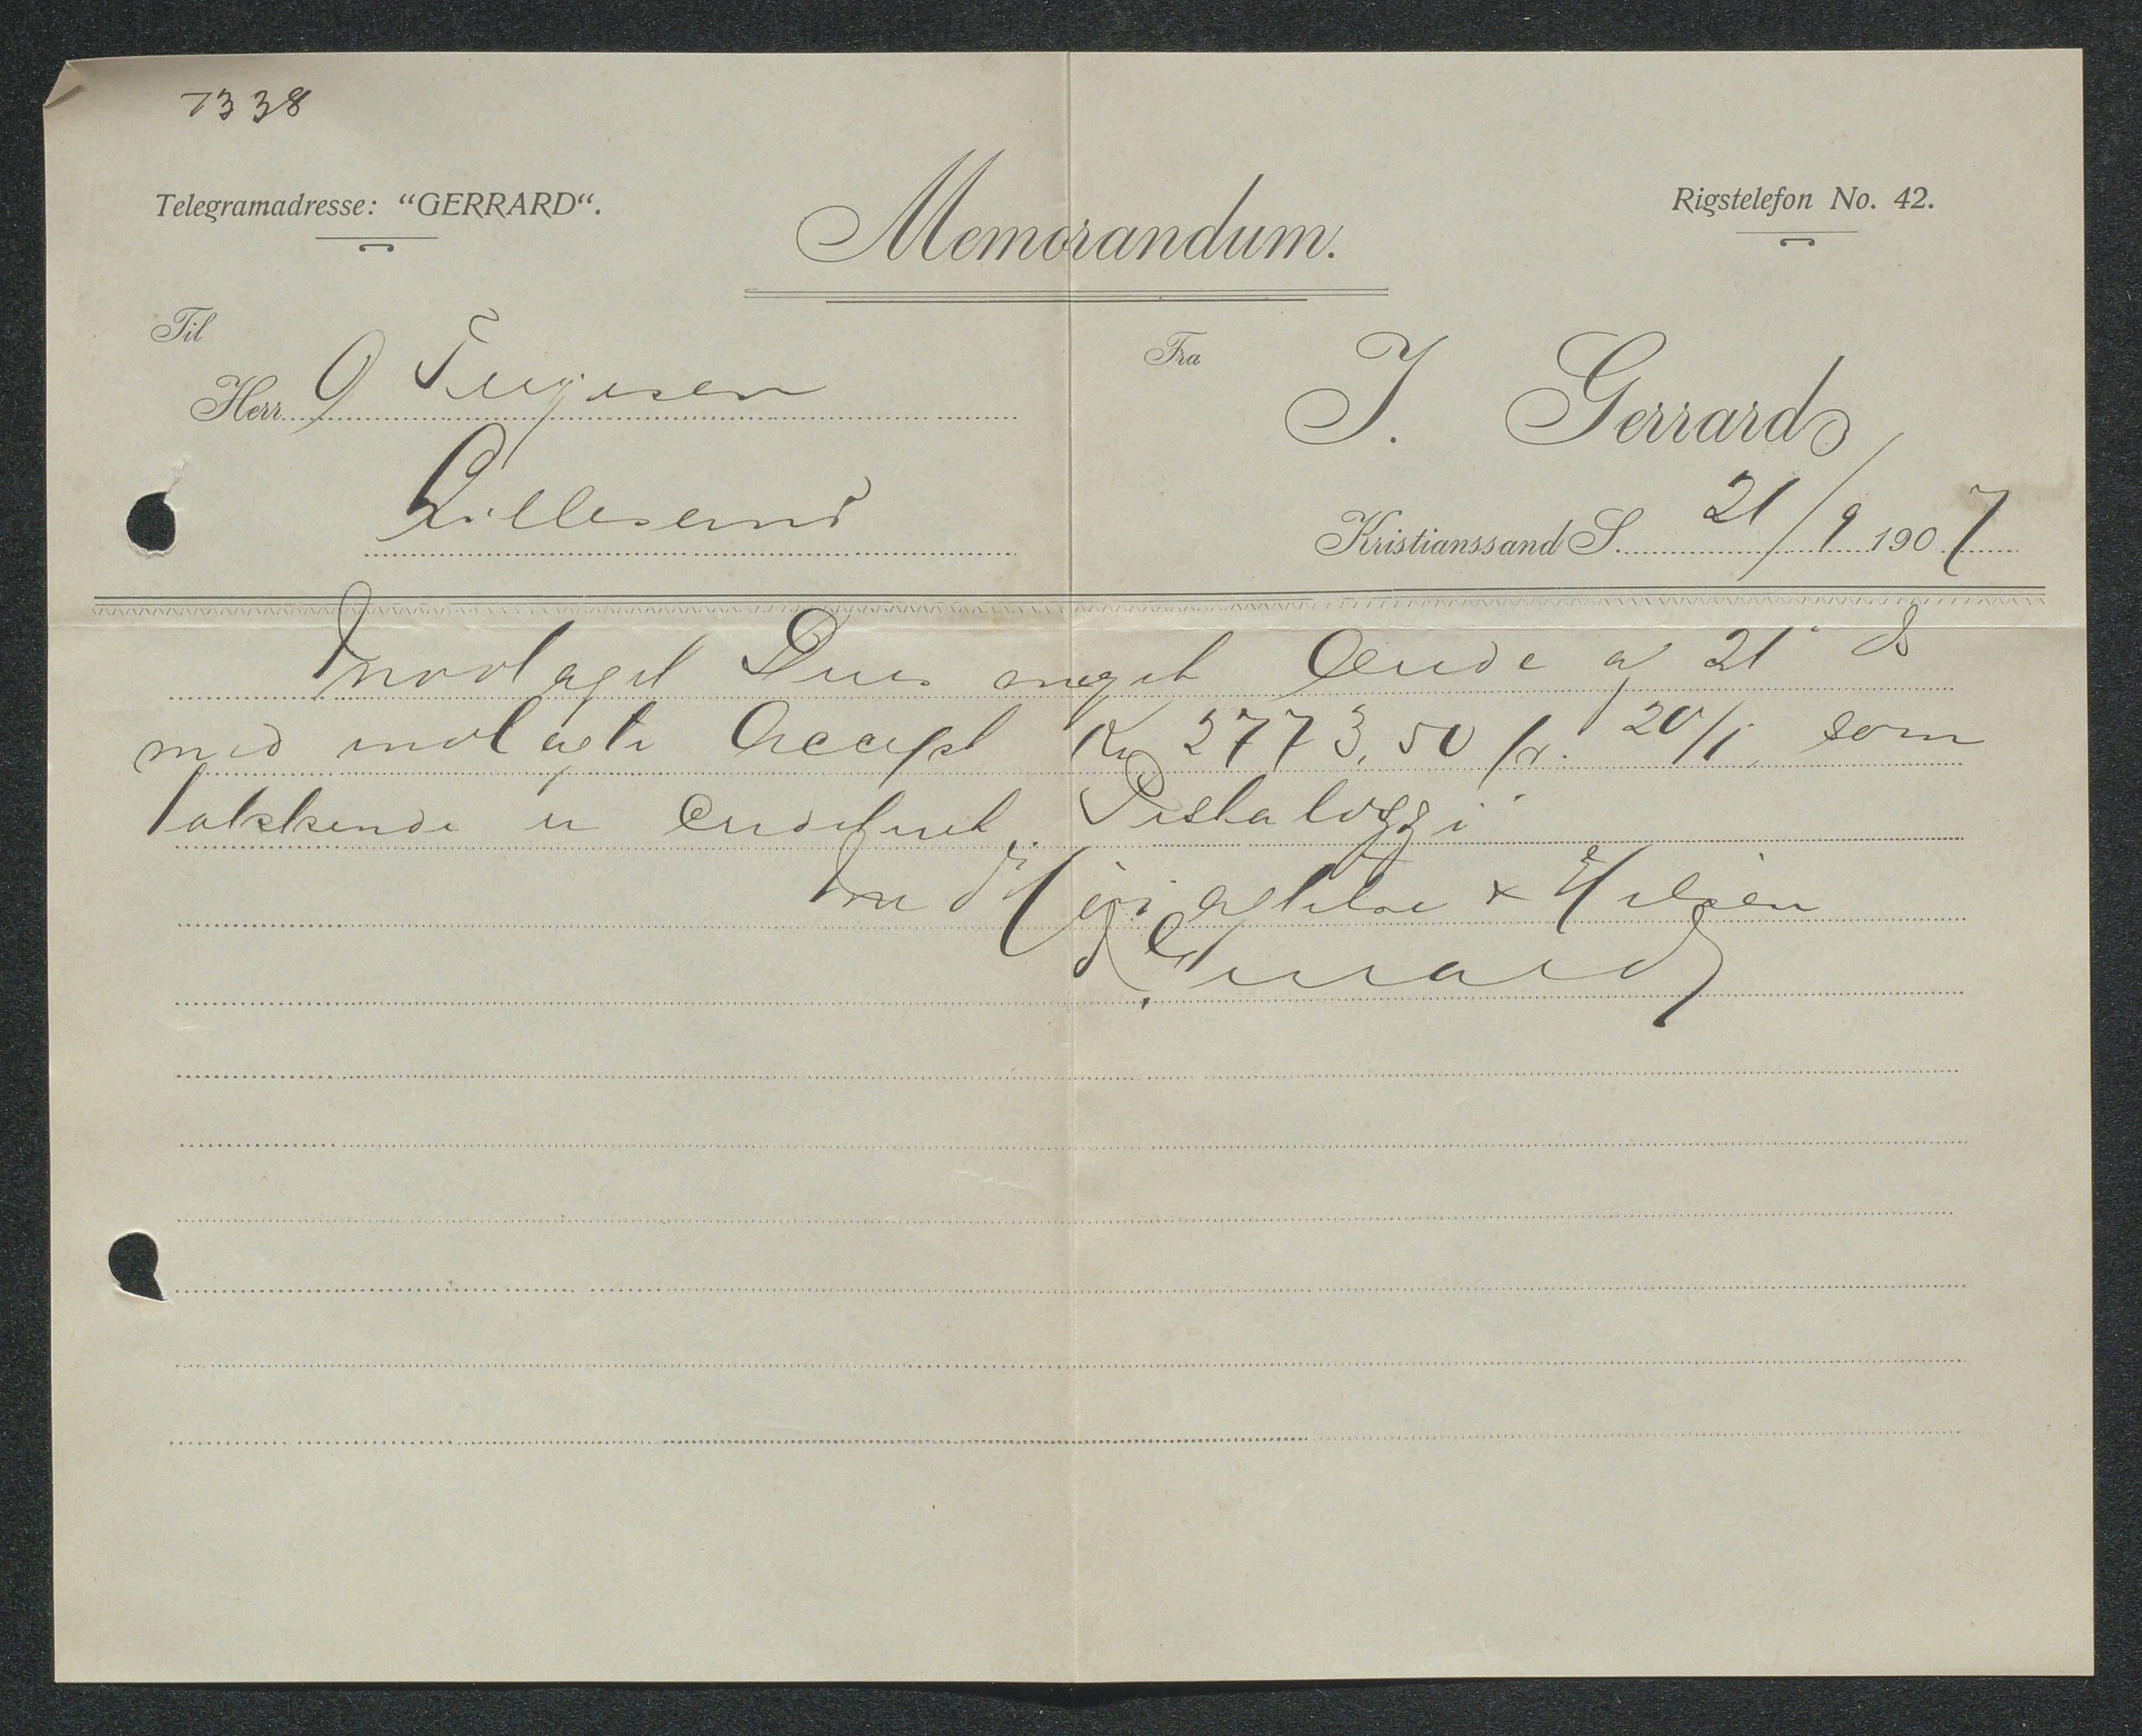 7338
Telegramadresse: “GERRARD“.
Memorandum.
Rigstelefon No. 42.
Til
Herr O Terjesen
Lillesand
Fra
J. Gerrard
Kristianssand S. 21/9 1907
Modtaget Deres ærede af 21 ds
med indlagte Accept Kr 2773,50 pr. 20/1, som
takkende er Pestalozzi
Med Høiagtelse & Hilsen
J Gerrard